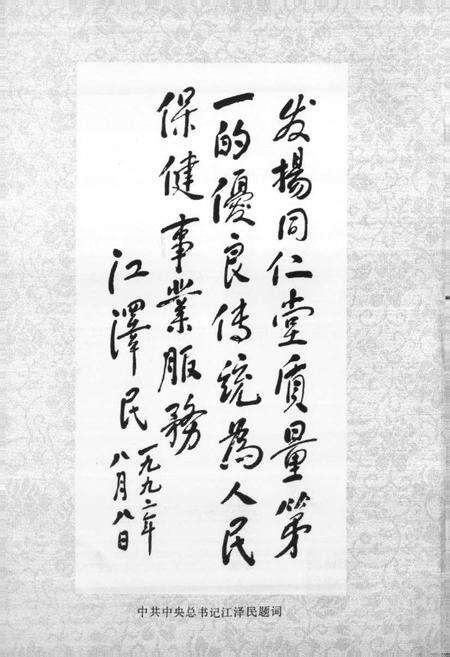 发揚同仁堂质量第
一的優良传统為人民
保健事業服務
江澤民
一九九二年
八月八日
中共中央总书记江泽民题词